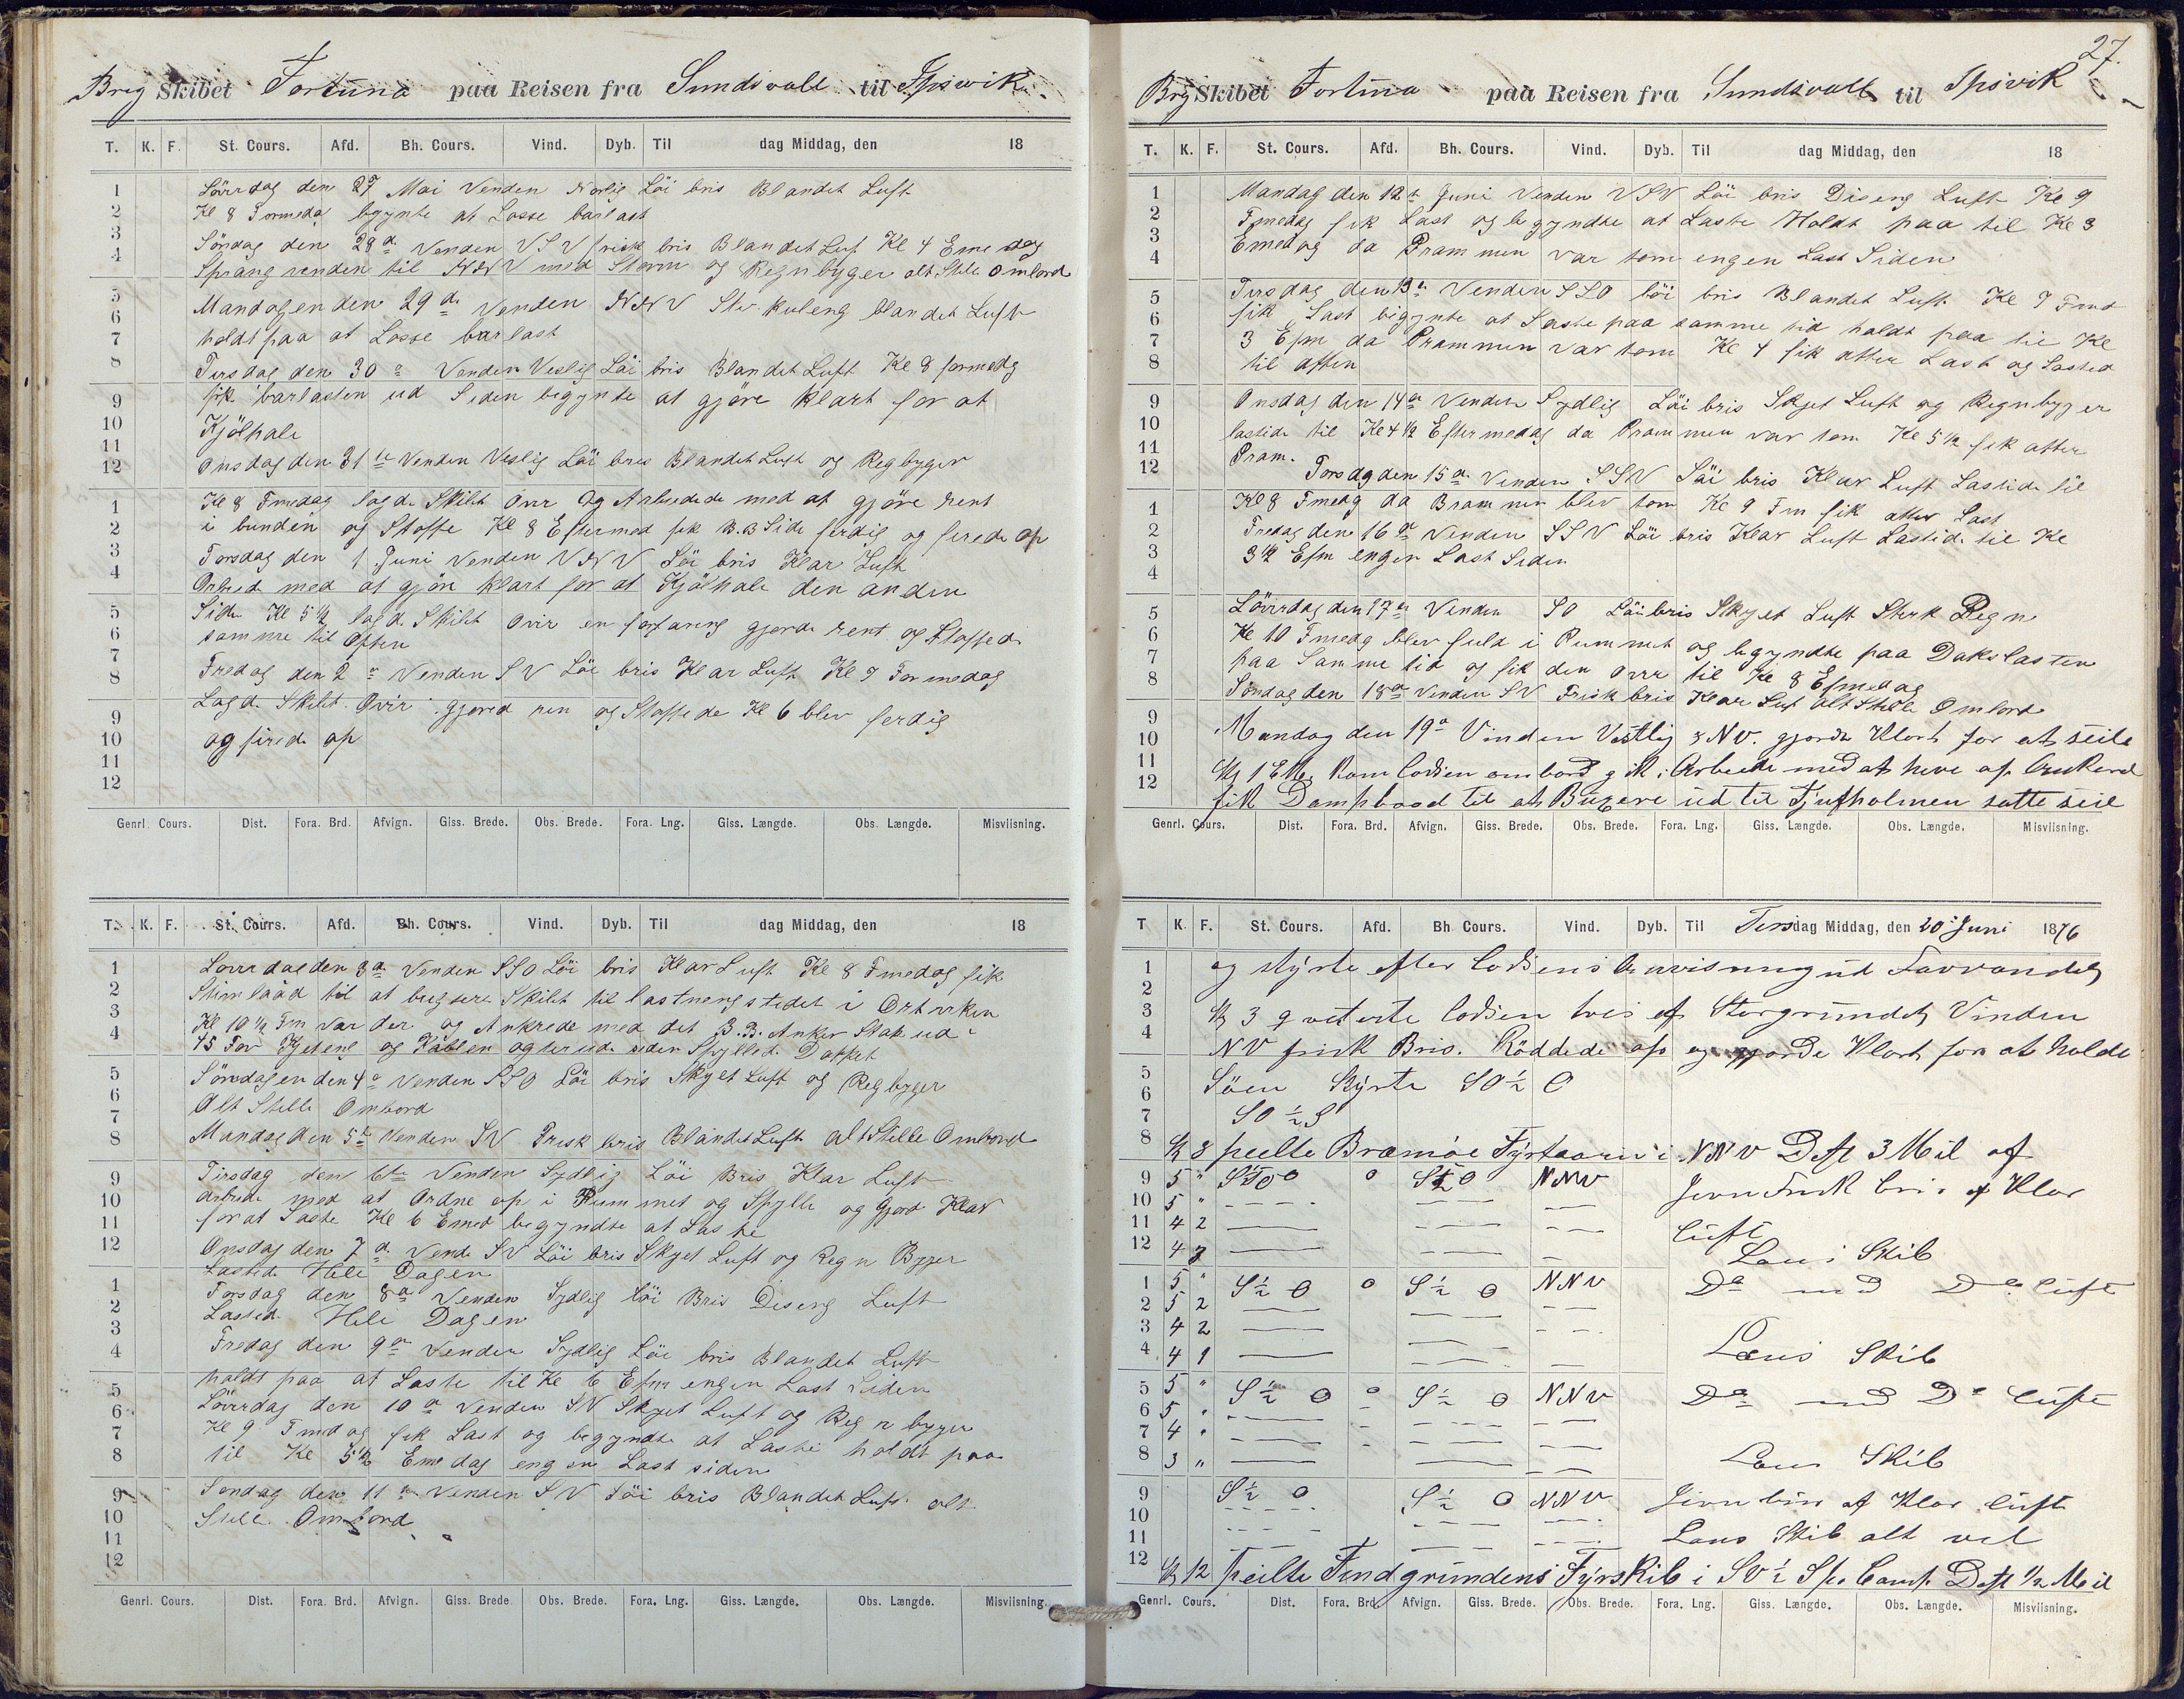 Brig Skibet Fortuna paa Reisen fra Sundsvall til Ipswik
T. K. F. St. Cours. Afd. Bh. Cours. Vind. Dyb. Til dag Middag, den 18
1 Lörrdag den 27 Mai Venden Norlig Löi bris Blandet Luft
2 Kl 8 Formeda begynte at Losse barlast
3 Söndag den 28d. Venden VSV frisk bris Blandet Luf Kl 4 Emedag
4 Sprang venden til NNV med Storm og Regnbyger alt Stile Ombord
5 Mandagen den 29d. Venden NNV Stiv kuleng blandet Luft
6
7 holdt paa at Losse barlast
8 Tirsdag den 30a Venden Veslig Löi bris Blandet Luft Kl 8 formedg
9 fik barlasten ud Siden begynte at gjöre klart for at
10 Kjölhale
11
12 Onsdag den 31te Venden Veslig Löi bris Blandet Luft og Regbyger
1 Kl 8 Fmedag lagde Skibet Over og Arbedede med at gjöre rent
2 i bunden og Stoffe Kl 8 Eftermed fik B.B Side ferdig og firede op
3 Torsdag den 1 Juni Venden VNV Löi bris Klar Luft
4 Arbed med at gjöre klart for at Kjölhale den anden
5 Side Kl 5½ lagde Skibet Over en forfaring gjorde rent og Stoffed
6 samme til Aften
7
8 Fredag den 2a Venden SV Löi bris Klar Luft Kl 9 Formedag
9 Lagde Skibet Over gjored ren og Stoffede Kl 6 blev ferdig
10 og firede op
11
12
Genrl. Cours. Dist. Fora. Brd. Afvign. Giss. Brede. Obs. Brede. Fora. Lng. Giss. Længde. Obs. Længde. Misviisning.
T. K. F. St. Cours. Afd. Bh. Cours. Vind. Dyb. Til dag Middag, den 18
1 Lörrdag den 3a Venden SSO Löi bris Klar Luft Kl 8 Fmedag fik
2 Stimbaad til at bugsere Skibet til lastnengstedet i
3 Kl 10½ Fm var der og Ankrede med det B.B. Anker Stak ud
4 45 Fav Kjetene og Kablen agterud siden Spylled Dakket
5 Söndagen den 4a Venden SSO Löi bris Skyet Luft og Regbyger
6 Alt Stelle Ombord
7
8 Mandag den 5te Venden SV Frisk bris Blandet Luft alt Stelle Ombord
9 Tirsdag den 6te Venden Sydlig Löi Bris Klar Luft
10 Arbede med at Ordne op i Rummet og Spylle og Gjord Klar
11 for at Laste Kl 6 Emed begyndte at Laste
12 Onsdag den 7d. Vend SV Löi bris Skyet Luft og Regn Byger
Lasted Hele Dagen
1 Torsdag den 8a Venden Sydlig Löi Bris Diseng Luft
2 Lasted Hele Dagen
3
4 Fredag den 9a Venden Sydlig Löi bris Blandet Luft
5 holdt paa at Laste til Kl 6 Efm engen Last Siden
6 Lörrdag den 10a Venden SV Skyet Luft og Regn byger
7 Kl 9 Fmedag fik Last og begyndte at Laste holdt paa
8 til Kl 5½ Emedag engen Last siden
9 Sondag den 11a Venden SV Löi bris Blandet Luft alt
10 Stille Ombord
11
12
Genrl. Cours. Dist. Fora. Brd. Afvign. Giss. Brede Obs. Brede. Fora. Lng. Giss. Længde. Obs. Længde. Misviisning.
27.
Brig Skibet Fortuna paa Reisen fra Sundsvall til Ipsvik
T. K. F. St. Cours. Afd. Bh. Cours. Vind. Dyb. Til dag Middag, den 18
1 Mandag den 12t Juni Venden VSV Löi bris Diseng Luft Kl 9
2 Fmedag fik Last og begyndte at Laste Holdt paa til Kl 3
3 Emedag da Prammen var tom engen Last Siden
4
5 Tirsdag den 13a Venden SSO löi bris Blandet Luft Kl 9 Fmd
6 fik Last bigynte at Laste paa samme tid holdt paa til Kl
7 3 Efm da Prammen var tom Kl 4 fik atter Last og Lasted
8 til aften
9 Onsdag den 14a Venden Sydlig Löi bris Skyet Luft og Regnbyger
10 lastede til Kl 4½ Eftermedag da Prammen var tom Kl 5½ fik atter
11 Pram.
12 Torsdag den 15a. Venden SSV Löi bris Klar Luft Lastede til
1 Kl 8 Fmedg da Brammen blev tom Kl 9 Fm fik atter Last
2 Fredag den 16de Venden SSV Löi bris Klar Luft Lastede til Kl
3 3½ Efm engen Last Siden
4
5 Lövrdag den 17a Venden SO Löi bris Skyet Luft Sterk Regn
6 Kl 10 Fmedg blev fuld i Rummet og begyndte paa Dakslasten
7 paa Samme tid og fik den Over til Kl 8 Efmedag
8 Sondag den 18a Venden SV Frisk bris Klar Luf Alt Stille Ombord
9
10 Mandag den 19a Vinden Vestlig & NV. gjorde Klart for at seile
11
12 Kl 1 EM. Kom lodsen ombord gik i Arbeide med at hive op Ankeret
fik Dampbaad til at Buxere ud til Tjufholmen satte seil
Genrl. Cours. Dist. Fora. Brd. Afvign. Giss. Brede. Obs. Brede. Fora. Lng. Giss. Længde. Obs. Længde. Misviisning.
T K. F. St. Cours. Afd. Bh. Cours. Vind. Dyb. Til Tirsdag Middag, den 20 Juni 1876
1 og styrte efter lodsens anvisning ud Farvandet
2
3 Kl 3 qviterte lodsen tvers af Storgrundet Vinden
4 NV frisk Bris. Röddede op og gjorde Klart for at holde
5 Söen Styrte SO ½ O
6
7 SO ½ S
8 Kl 8 peilte Bramöe Fyrtaarn i NNV Dst 3 Mil af
9 5 " NNV Jevn Frisk bris af Klar
10 5 "
11 4 2 luft
12 4 3 Lens Skib
1 5 " S ½ O 0 S ½ O NNV Do med Do luft
2 5 2
3 4 2
4 4 1 Lens Skib
5 5 " S ½ O 0 S ½ O NNV Do med Do luft
6 5 "
7 4 "
8 3 " Lens Skib
9 S ½ O S ½ O NNV Jevn bris af Klar luft
10
11 Lens Skib alt vel
12 Kl 12 peilte Findgrundens Fyrskib i SV ½ S pr Comp. Dst ½ Mil
Genrl. Cours. Dist. Fora. Brd. Afvign. Giss. Brede. Obs. Brede. Fora. Lng. Giss. Længde. Obs. Længde. Misviisning.